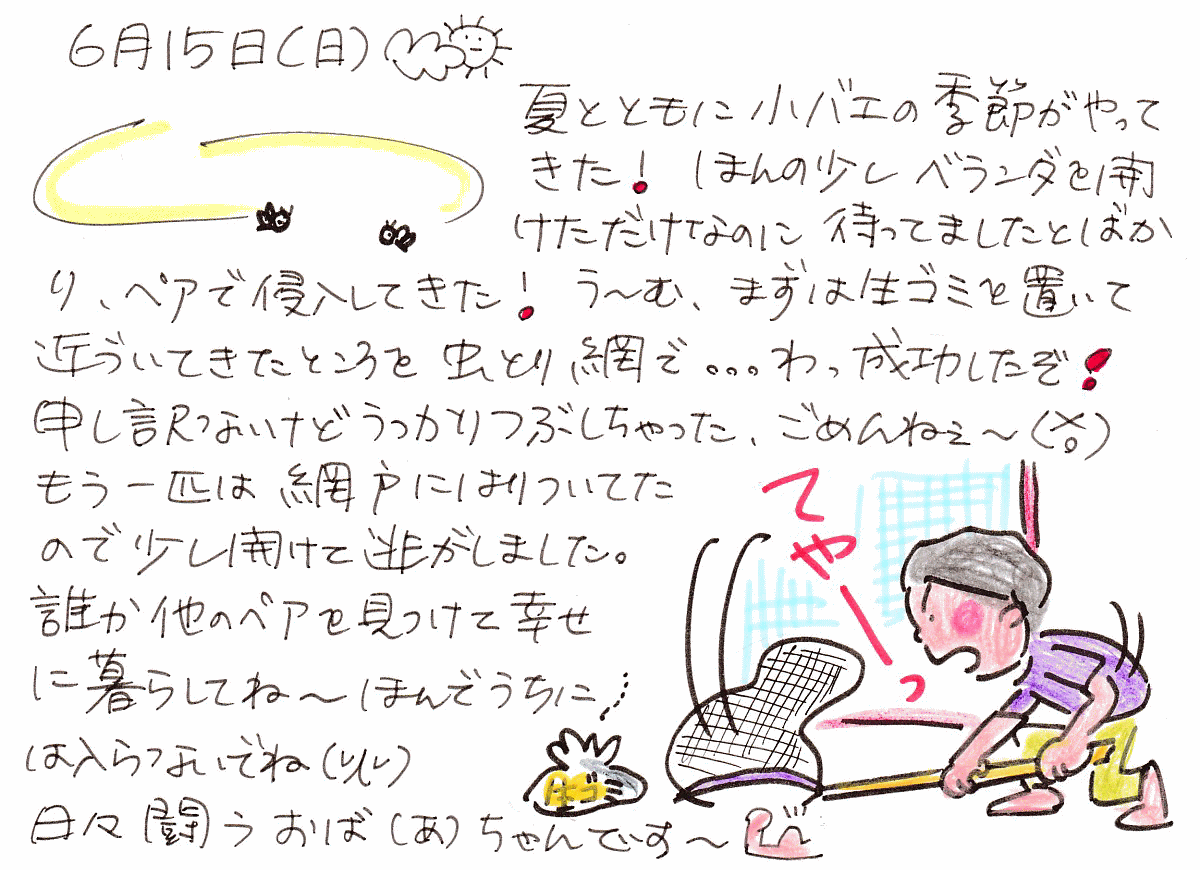 6月15日(日)
夏とともに小バエの季節がやって
きた! ほんの少しベランダを開
けただけなのに待ってましたとばか
り、ペアで侵入してきた! う〜む、まずは生ゴミを置いて
近づいてきたところを虫とり網で...わっ成功したぞ!
申し訳ないけどうっかりつぶしちゃった、ごめんねぇ〜(×。)
もう一匹は網戸にはりついてた
ので少し開けて逃がしました。
誰か他のペアを見つけて幸せ
に暮らしてね〜ほんでうちに
は入らないでね(しし)
日々闘うおば(あ)ちゃんです〜
てやーっ